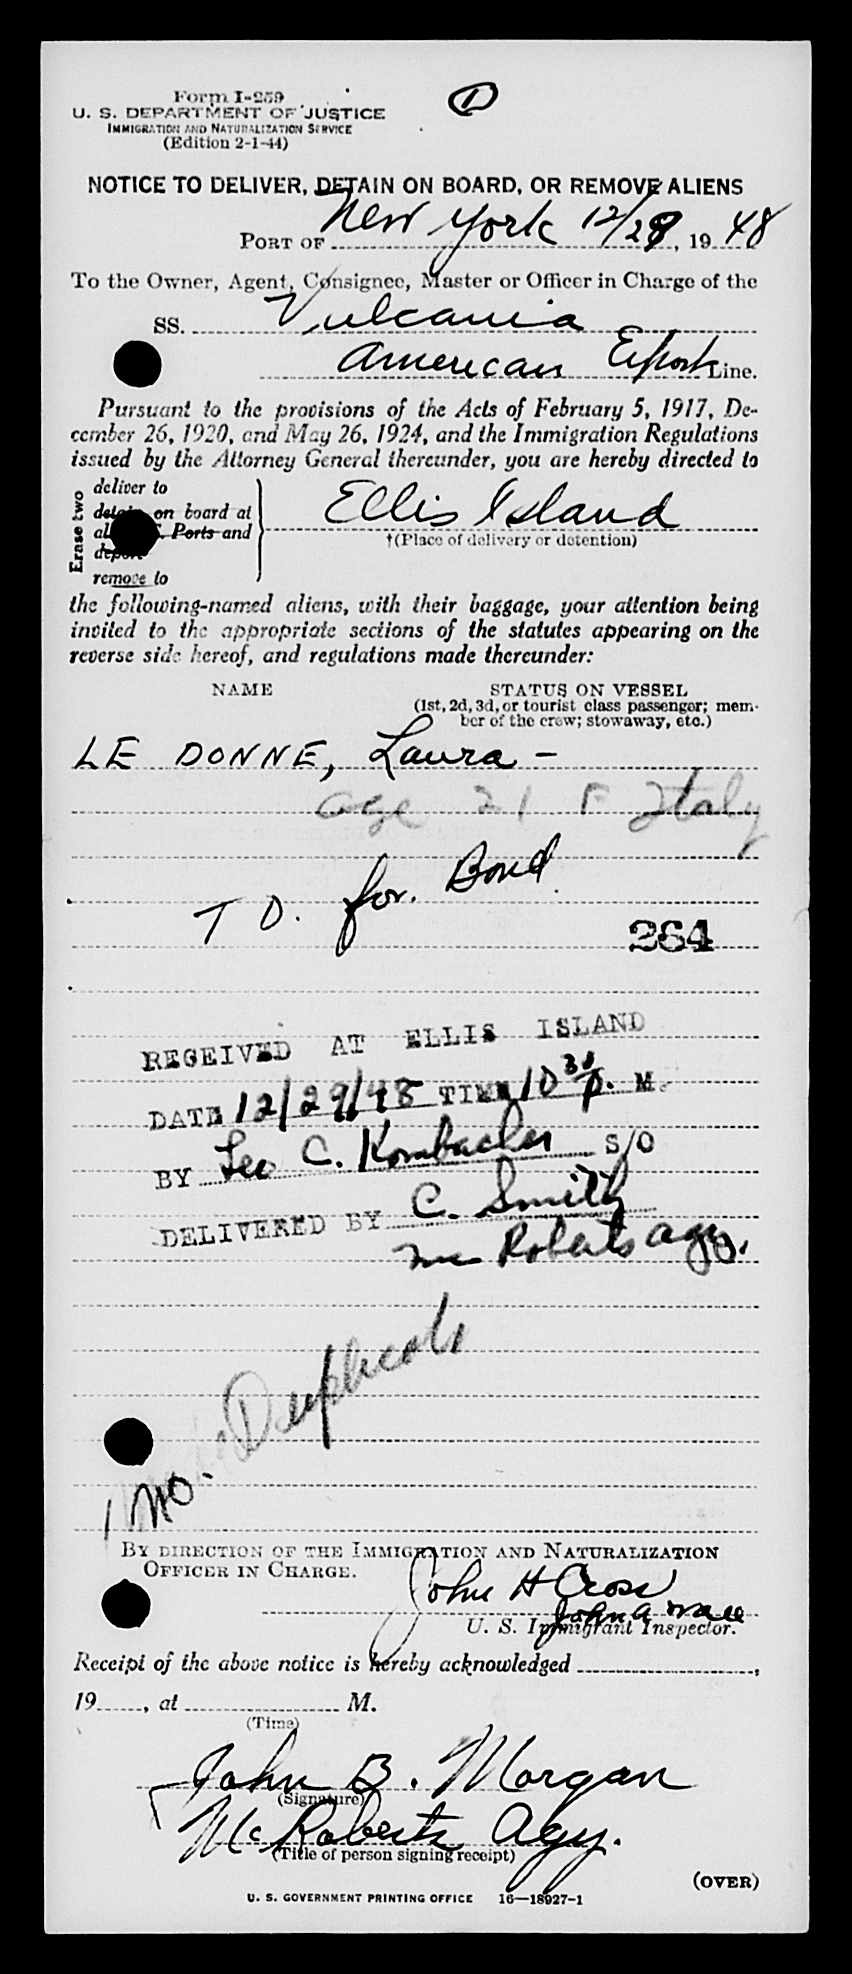 Form I-259
U. S. DEPARTMENT OF JUSTICE
IMMIGRATION AND NATURALIZATION SERVICE
(Edition 2-1-44)
NOTICE TO DELIVER, DETAIN ON BOARD, OR REMOVE ALIENS
PORT OF New York 12/29, 1948
To the Owner, Agent, Consignee, Master or Officer in Charge of the
SS. Vulcania
American Export Line.
Pursuant to the provisions of the Acts of February 5, 1917, De-
cember 26, 1920, and May 26, 1924, and the Immigration Regulations
issued by the Attorney General thereunder, you are hereby directed to
Erase two
deliver to
detain on board at
Ports and
deport
remove to
Ellis Island
†(Place of delivery or detention)
the following-named aliens, with their baggage, your attention being
invited to the appropriate sections of the statutes appearing on the
reverse side hereof, and regulations made thereunder:
NAME STATUS ON VESSEL
(1st, 2d, 3d, or tourist class passenger; mem-
ber of the crew; stowaway, etc.)
LE DONNE, Laura -
age 21 F Italy
T D. for. Bond
264
RECEIVED AT ELLIS ISLAND
DATE 12/29/48 TIME 10 30 P. M.
BY Leo C. Kombacher S/O
DELIVERED BY C. Smith
Mc Roberts agy.
No. Duplicate
BY DIRECTION OF THE IMMIGRATION AND NATURALIZATION
OFFICER IN CHARGE.
John H Cross
John A
U. S. Immigrant Inspector.
Receipt of the above notice is hereby acknowledged
19, at M.
(Time)
John B. Morgan
(Signature)
Mc Roberts Agy.
(Title of person signing receipt)
(OVER)
U. S. GOVERNMENT PRINTING OFFICE 16—18927-1